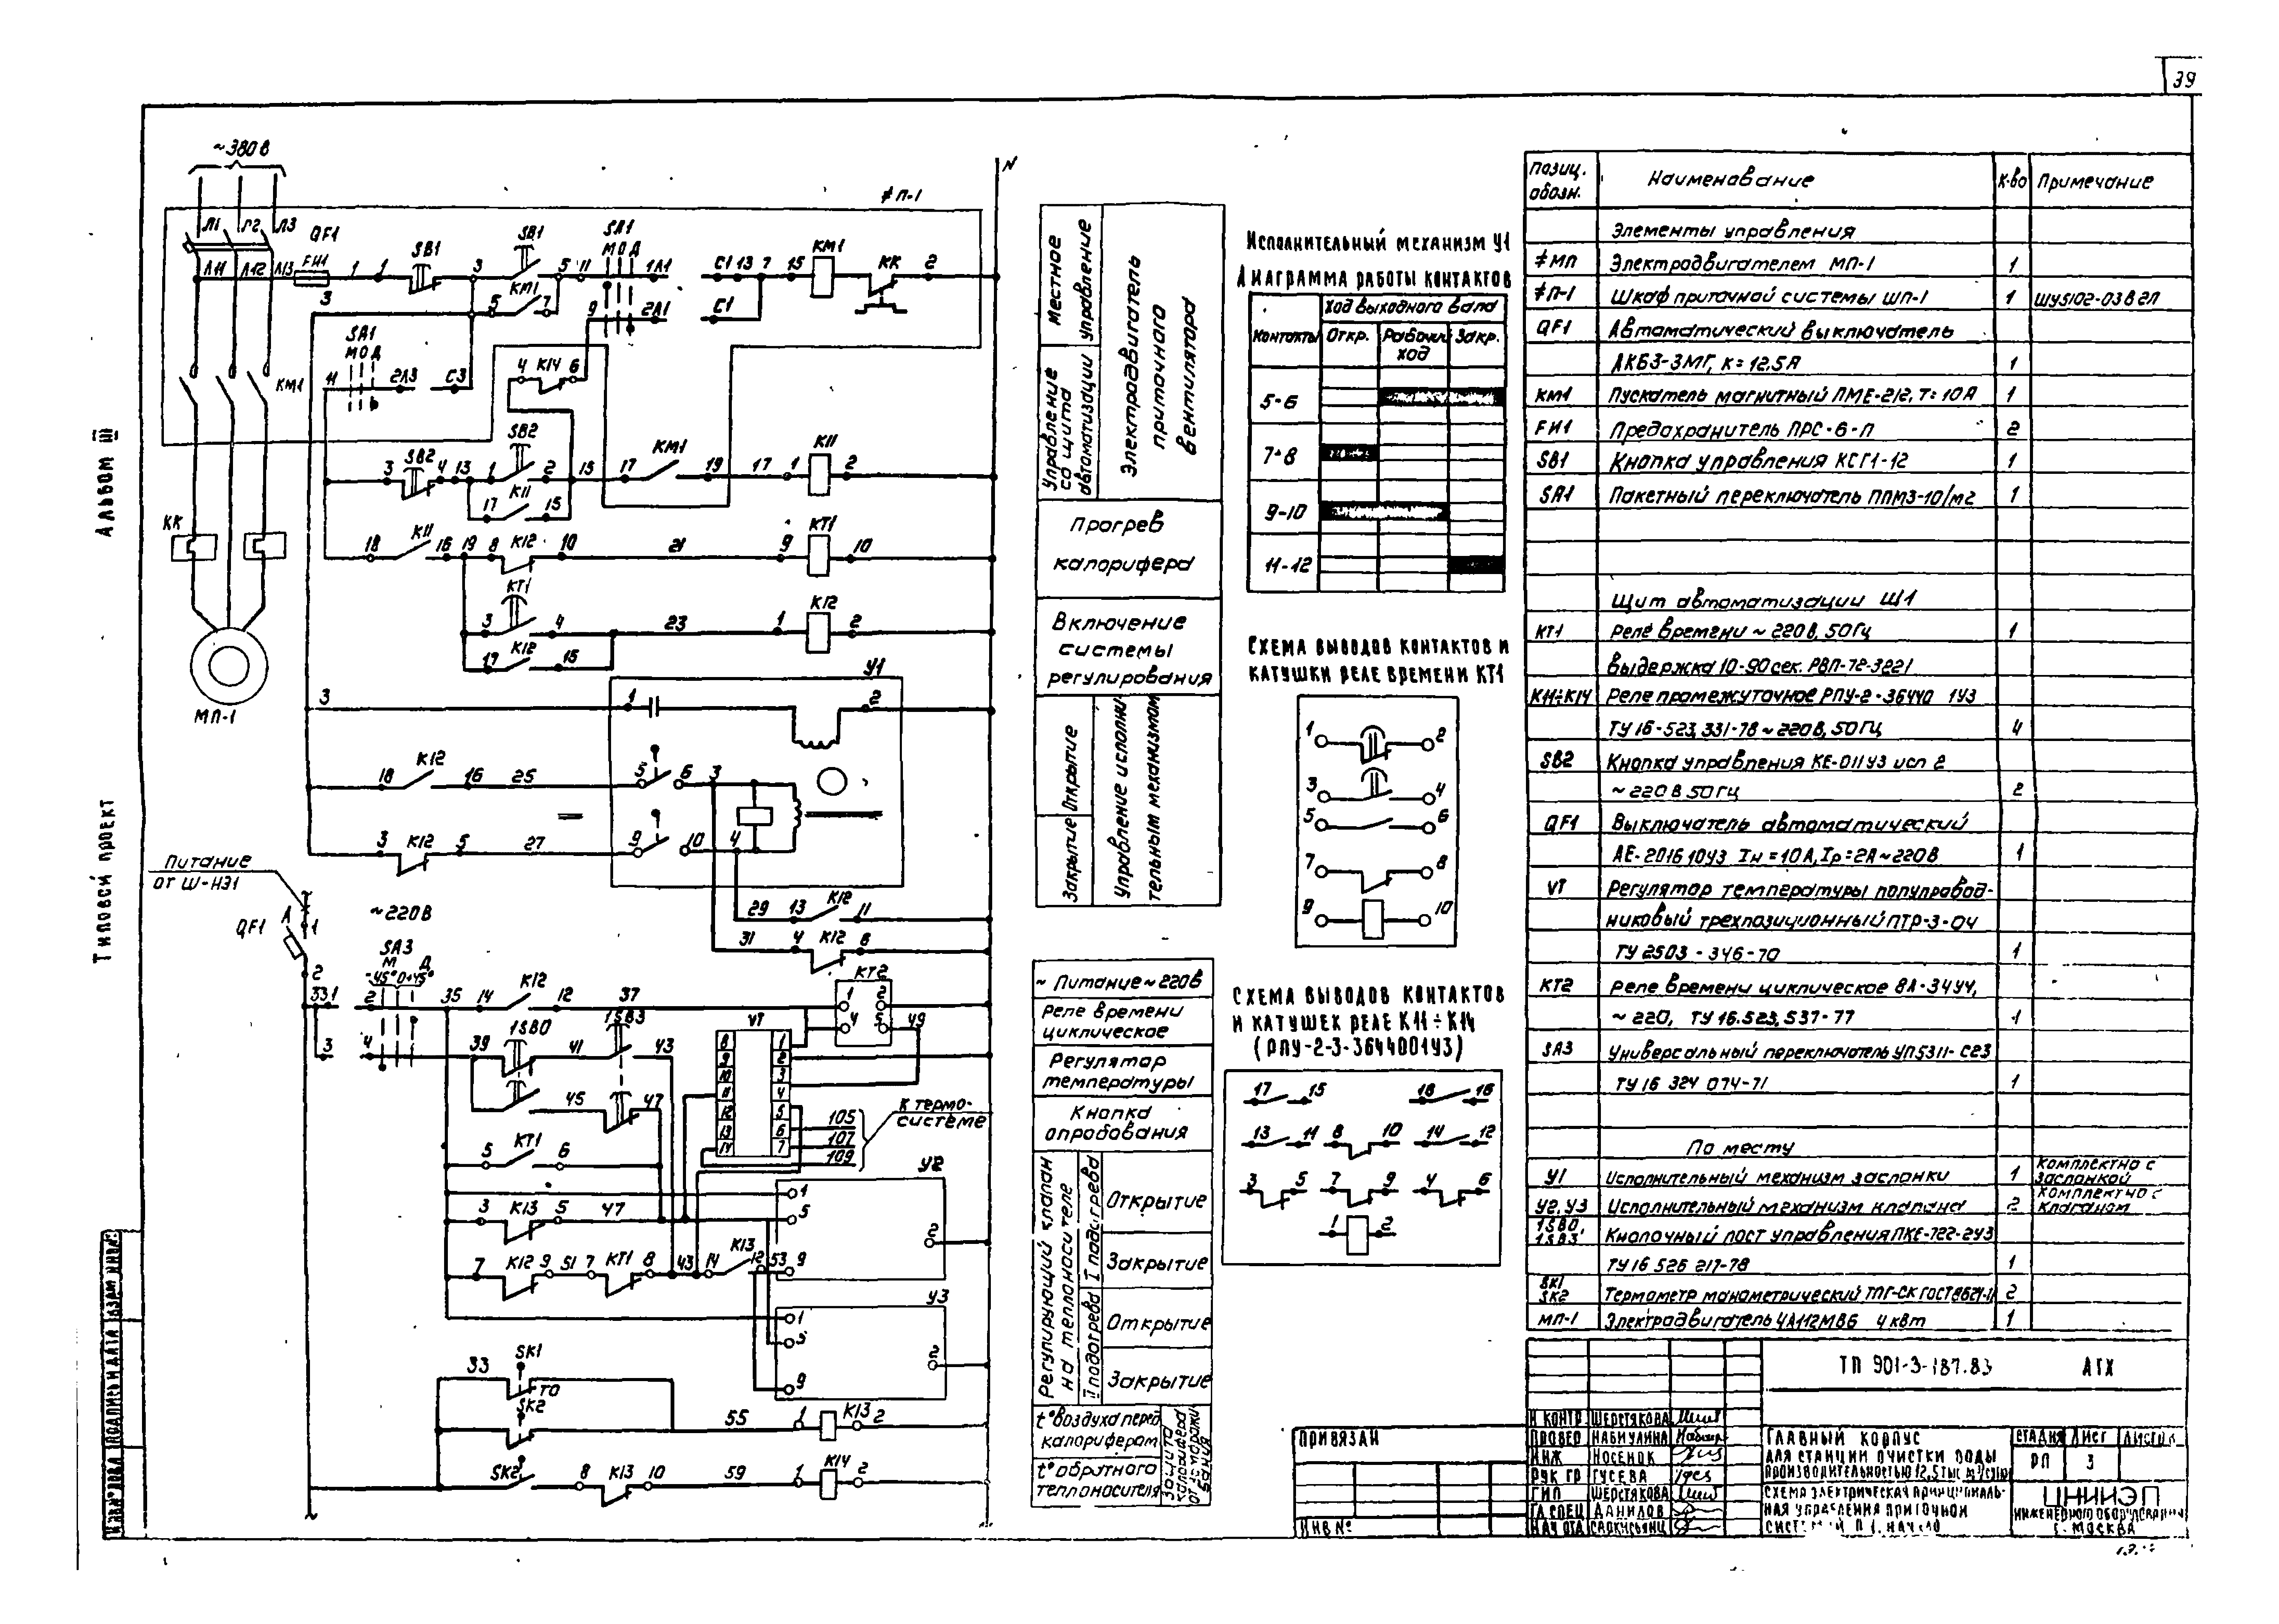 39
Альбом III
Типовой проект
~380 В
N
≠П-1
Л1 Л2 Л3
QF1
Л11 Л12 Л13 FИ1 1 1 SB1 3 SB1 5 11 SA1 1Л1 C1 13 7 15 КМ1 КК 2
М О Д
3 5 КМ1 7 9 2Л1 C1
SA1
М О Д
11 2Л3 C3
4 К14 6
КМ1
3 SB2 4 13 1 SB2 2 15 17 КМ1 19 17 1 К11 2
17 К11 15
КК
18 К11 16 19 8 К12 10 21 9 КТ1 10
3 КТ1 4 23 1 К12 2
17 К12 15
МП-1
У1
3 1 2
18 К12 16 25 5 6 3
3 К12 5 27 9 10 4
29 13 К12 11
31 4 К12 6
Питание
от Ш-НЭ1
А
1
QF1
2
~220В
SA3
М Д
-45° 0 +45°
33 1 2 35 14 К12 12 37 КТ2
1 2
4 5 49
3 4 39 1SB0 41 1SB3 43
45 47
VT
8 1
9 2
10 3
11 4
12 5
13 6
14 7
105
107
109
К термо-
системе
5 КТ1 6
У2
1
3 К13 5 47 5
2
7 К12 9 51 7 КТ1 8 43 14 К13 12 53 9
У3
1
5
2
9
33 SK1
ТО
SK2 55 1 К13 2
SK2 8 К13 10 59 1 К14 2
Местное управление
Управление со щита автоматизации
Электродвигатель приточного вентилятора
Прогрев
калорифера
Включение
системы
регулирования
Открытие
Закрытие
Управление исполни-
тельным механизмом
~ Питание ~220В
Реле времени
циклическое
Регулятор
температуры
Кнопка
опробования
Регулирующий клапан
на теплоносителе
I подогрева
Открытие
Закрытие
II подогрева
Открытие
Закрытие
t° воздуха перед
калорифером
t° обратного
теплоносителя
Защита калорифера от замораживания
Исполнительный механизм У1
Диаграмма работы контактов
Контакты
Ход выходного вала
Откр. Рабочий ход Закр.
5-6
7-8
9-10
11-12
Схема выводов контактов и
катушки реле времени КТ1
1 2
3 4
5 6
7 8
9 10
Схема выводов контактов
и катушек реле К11÷К14
(РПУ-2-3-36440013У3)
17 15 18 16
13 11 8 10 14 12
3 5 7 9 4 6
1 2
Позиц. обозн. Наименование К-во Примечание
Элементы управления
≠МП Электродвигателем МП-1 1
≠П-1 Шкаф приточной системы ШП-1 1 ШУ5102-03В2Л
QF1 Автоматический выключатель
АК63-3МГ, К=12,5А 1
КМ1 Пускатель магнитный ПМЕ-212, Т=10А 1
FИ1 Предохранитель ПРС-6-П 2
SB1 Кнопка управления КСГ1-12 1
SA1 Пакетный переключатель ППМ3-10/м2 1
Щит автоматизации Щ1
КТ1 Реле времени ~220В, 50Гц 1
выдержка 10-90сек. РВП-72-3221
К11÷К14 Реле промежуточное РПУ-2-36440 1У3
ТУ 16-523.331-78 ~220В, 50Гц 4
SB2 Кнопка управления КЕ-011У3 исп 2
~220В 50Гц 2
QF1 Выключатель автоматический
АЕ-2016 10У3 Iн=10А, Iр=2А ~220В 1
VT Регулятор температуры полупровод-
никовый трехпозиционный ПТР-3-04
ТУ 2503-346-70 1
КТ2 Реле времени циклическое ВЛ-34У4,
~220, ТУ 16.523.537-77 1
SA3 Универсальный переключатель УП5311-С23
ТУ 16 324 074-71 1
По месту
У1 Исполнительный механизм заслонки 1 Комплектно с заслонкой
У2, У3 Исполнительный механизм клапана 2 Комплектно с клапаном
1SB0
1SB3 Кнопочный пост управления ПКЕ-722-2У3
ТУ 16 526 217-78 1
SK1
SK2 Термометр манометрический ТПГ-СК ГОСТ8624-71 2
МП-1 Электродвигатель 4А112МВ6 4 кВт 1
ТП 901-3-187.83 АТХ
Привязан
Инв №
Н контр Шерстякова
Провер Набиулина
Инж Носенок
Рук гр Гусева
ГИП Шерстякова
Гл спец Данилов
Нач отд Саркисьянц
Главный корпус
для станции очистки воды
производительностью 12,5 тыс м³/сутки
Стадия Лист Листов
РП 3
Схема электрическая принципиаль-
ная управления приточной
системой П-1.
ЦНИИЭП
инженерного оборудования
г. Москва
Инв № подл Подпись и дата Взам инв №